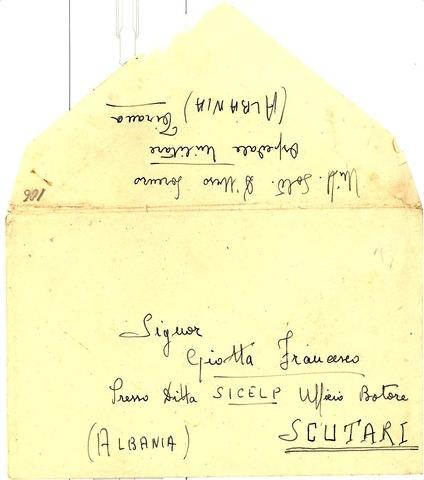 Mitt. Sold. D'Urso Lorenzo
Ospedale Militare
Tirana
(ALBANIA)
106
Signor
Giotta Francesco
Presso Ditta SICELP Ufficio Botore
(ALBANIA) SCUTARI